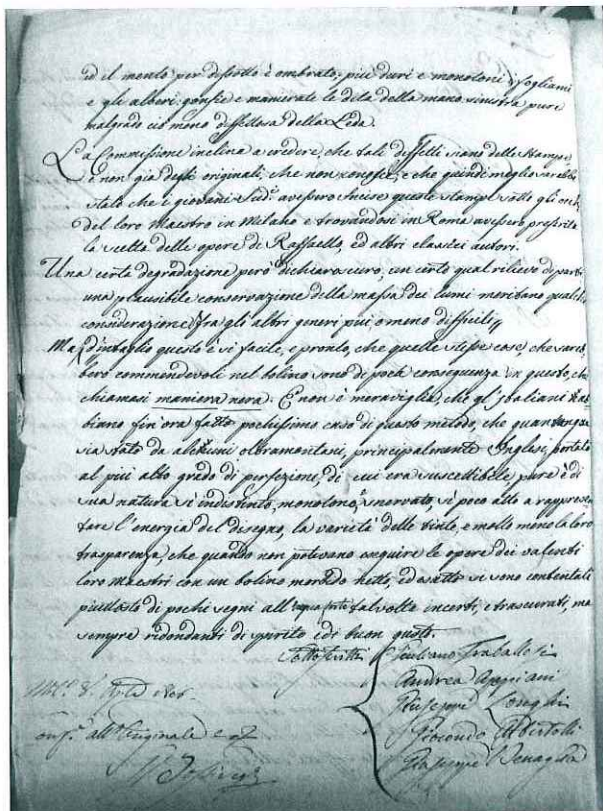 ed il mento per disotto è ombrato; più duri e monotoni i fogliami
e gli alberi: gonfie e manierate le dita della mano sinistra pure
malgrado ciò meno diffettosa della Leda.
La Commissione inclina a credere, che tali diffetti siano delle Stampe,
e non già degli originali, che non conosce, e che quindi meglio sarebbe
stato che i giovani Sud.i avessero incise queste stampe sotto gli occhi
del loro Maestro in Milano e trovandosi in Roma avessero preferita
la scelta delle opere di Raffaello, ed altri classici autori.
Una certa degradazione però di chiaroscuro, un certo qual rilievo di parti
una plausibile conservazione della massa dei lumi meritano qualche
considerazione fra gli altri generi più o meno difficili
Ma d'intaglio questo è sì facile, e pronto, che quelle stesse cose, che sareb
bero commendevoli nel bolino sono di poca conseguenza in questo, che
chiamasi maniera nera. E non è meraviglia, che gl'Italiani ab
biano fin'ora fatto pochissimo caso di questo metodo, che quantunque
sia stato da alcuni oltramontani, principalmente Inglesi, portato
al più alto grado di perfezione, di cui era suscettibile pure è di
sua natura sì indistinto, monotono, e snervato, sì poco atto a rappresen
tare l'energia del disegno, la varietà delle tinte, e molto meno la loro
trasparenza, che quando non potevano eseguire le opere dei valenti
loro maestri con un bolino morbido netto, ed esatto si sono contentati
piuttosto di pochi segni all'acqua forte talvolta incerti, e trascurati, ma
sempre ridondanti di spirito e di buon gusto.
Sottoscritti
Giuliano Traballesi
Andrea Appiani
Giuseppe Longhi
Giocondo Albertolli
Giuseppe Benaglia
Mil.o 8.
conf.e all'Originale